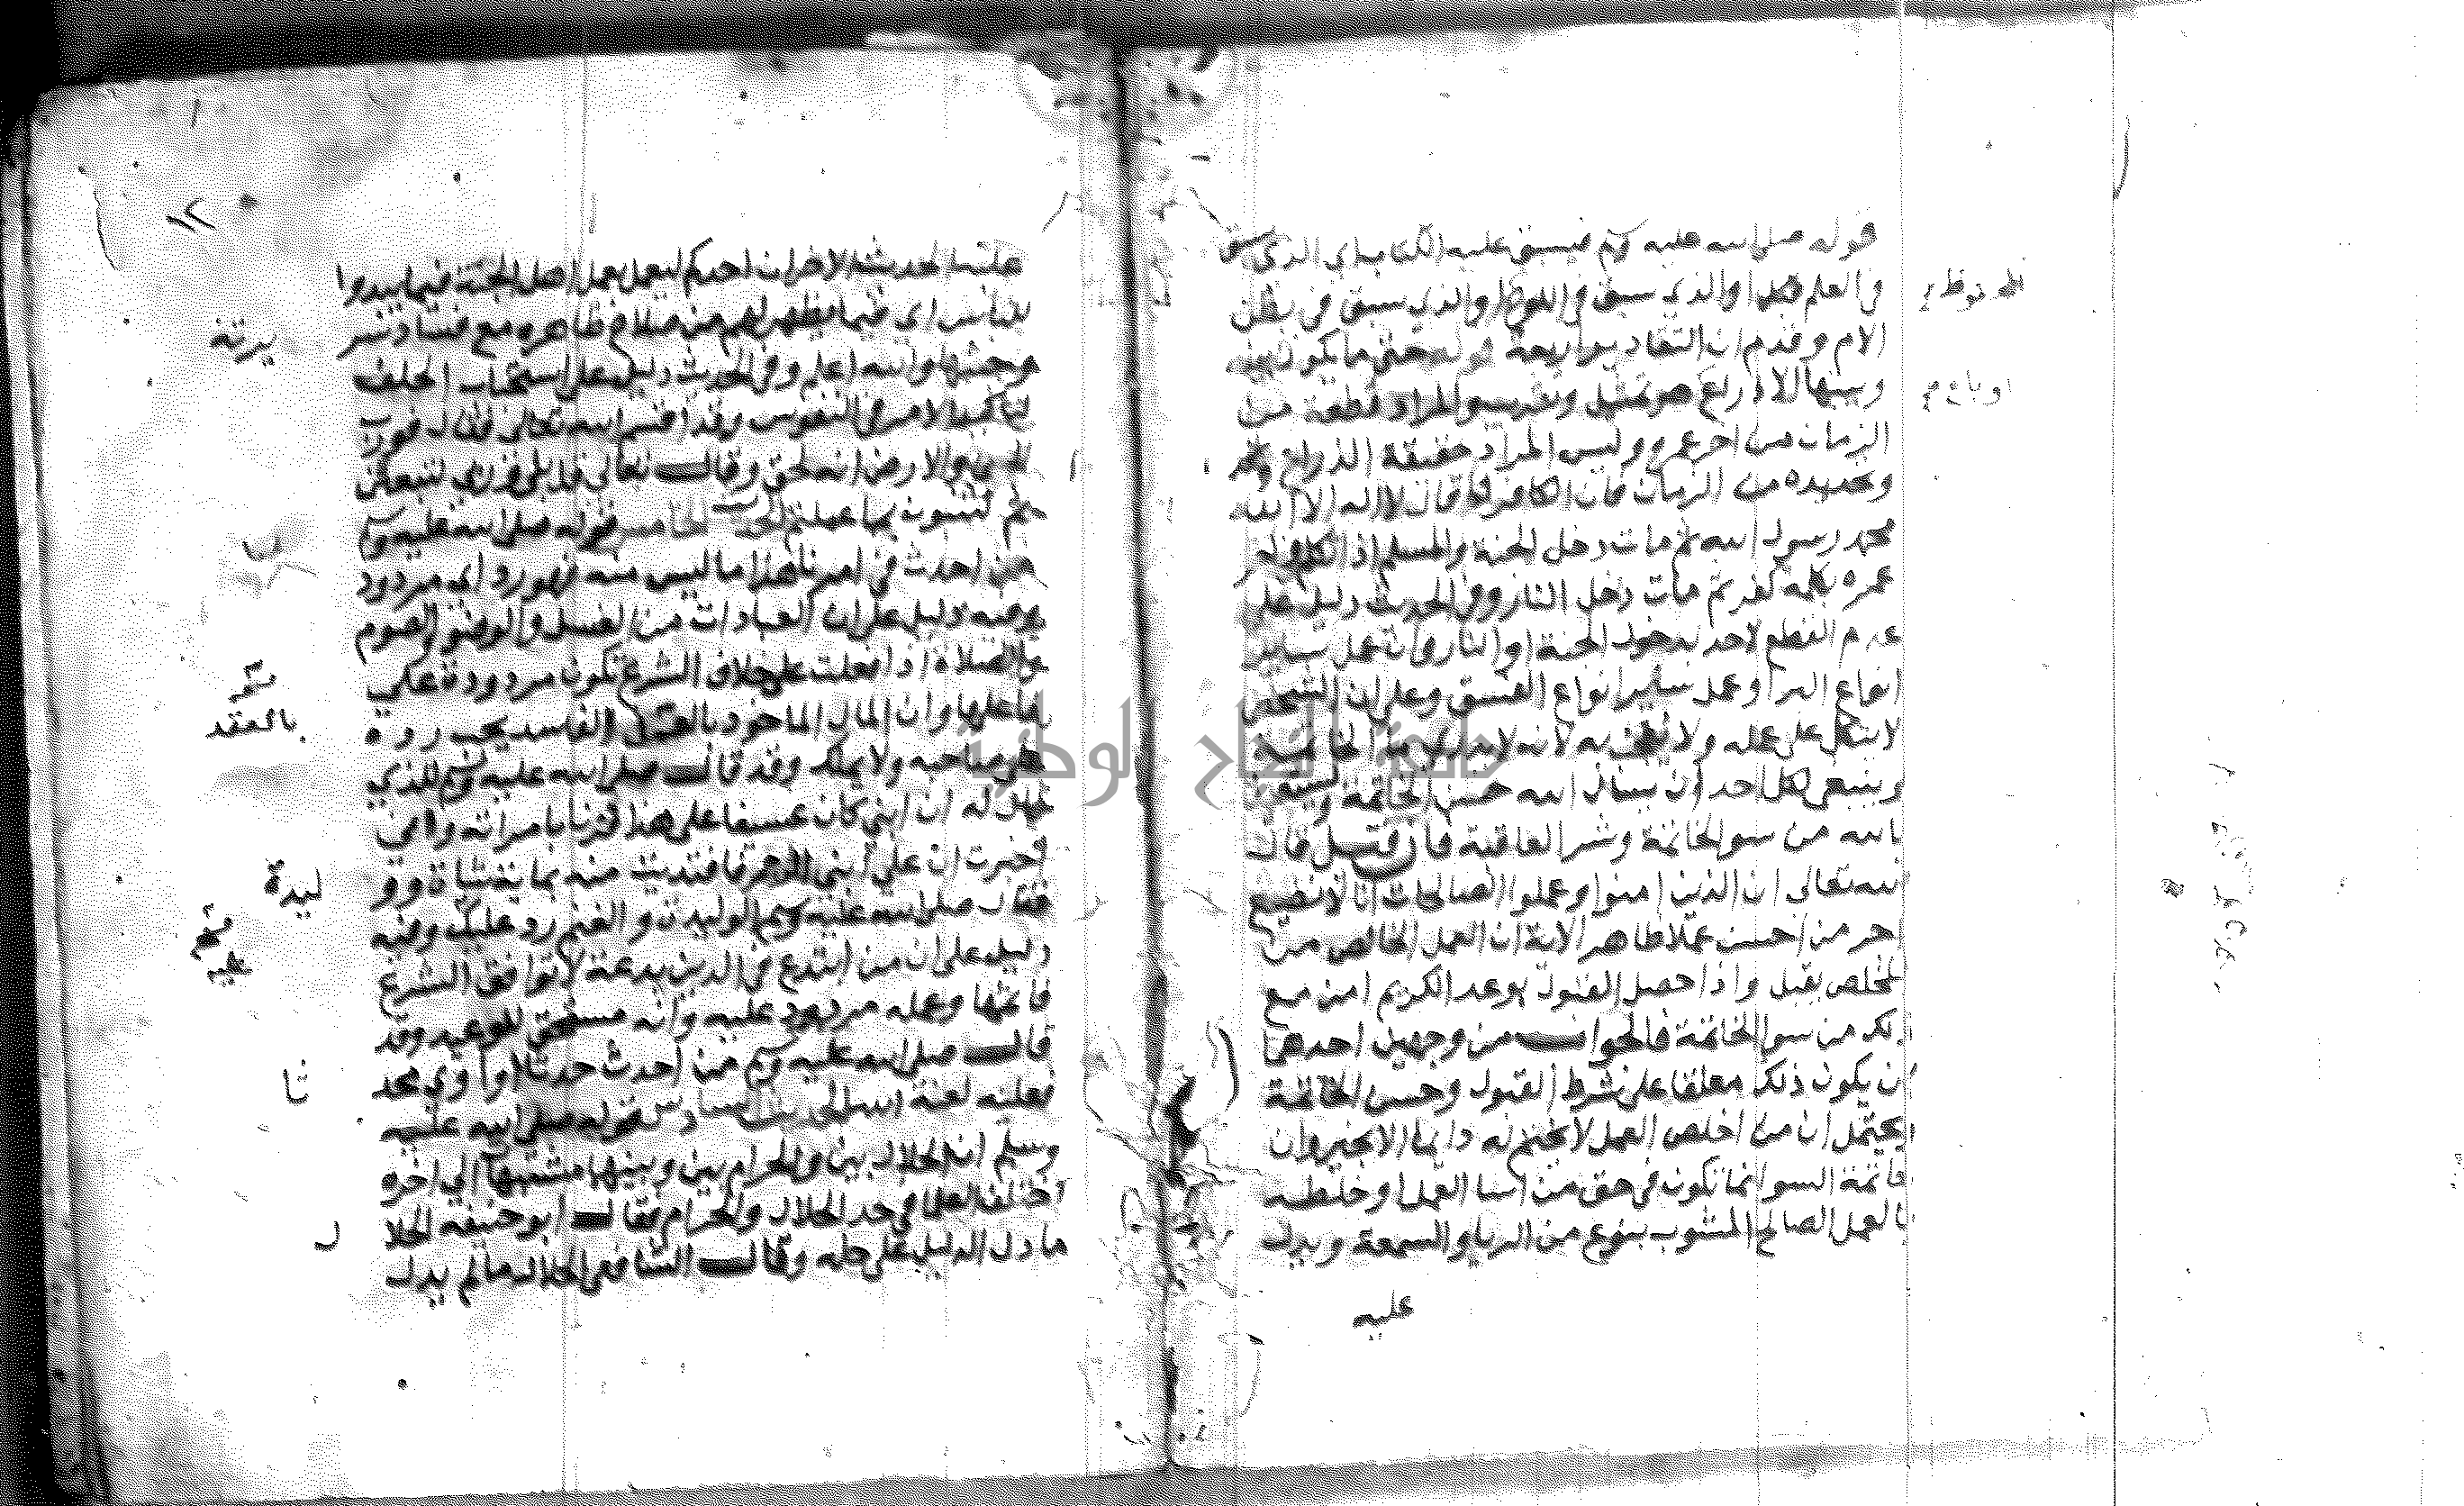 قوله صلى الله عليه وسلم فيسبق عليه الكتاب اي الذي سبق
في العلم او الذي سبق في اللوح او الذي سبق في بطن
الام وقدم ان التقادير اربعة قوله حتى ما يكون بينه
وبينها الا ذراع هو تمثيل وتقريب والمراد قطعة من
الزمان من اخر عمره وليس المراد حقيقة الذراع
وتحديده من الزمان فان الكافر اذا قال لا اله الا الله
محمد رسول الله ثم مات دخل الجنة والمسلم اذا تكلم في اخر
عمره بكلمة الكفر ثم مات دخل النار وفي الحديث دليل على
عدم القطع لاحد بدخول الجنة او النار وان عمل سائر
انواع البر او عمل سائر انواع الفسق وعلى ان الشخص
لا يتكل على عمله ولا يعجب به لانه لا يدري ما الخاتمة
وينبغي لكل احد ان يسال الله حسن الخاتمة ويستعيذ
بالله من سوء الخاتمة وشر العاقبة فان قيل قال
الله تعالى ان الذين امنوا وعملوا الصالحات انا لا نضيع
اجر من احسن عملا ظاهر الاية ان العمل الخالص من
المخلص يقبل واذا حصل القبول بوعد الكريم امن مع
ذلك من سوء الخاتمة فالجواب من وجهين احدهما
ان يكون ذلك معلقا على شرط القبول وحسن الخاتمة
ويحتمل ان من اخلص العمل لا يختم له دائما الا بخير وان
خاتمة السوء انما تكون في حق من اسا العمل او خلطه
بالعمل الصالح المشوب بنوع من الريا والسمعة ويدل
عليه
عليه الحديث الاخر ان احدكم ليعمل بعمل اهل الجنة فيما يبدوا
للناس اي فيما يظهر لهم من صلاح ظاهره مع فساد سر
وخبثها والله اعلم وفي الحديث دليل على استحباب الحلف
لتاكيد الامر في النفوس وقد اقسم الله تعالى فقال فورب
السما والارض انه لحق وقال تعالى قل بلى وربي لتبعثن
ثم لتنبئون بما عملتم الحديث الخامس قوله صلى الله عليه وسلم
من احدث في امرنا هذا ما ليس منه فهو رد اي مردود
وفيه دليل على ان العبادات من الغسل والوضو والصوم
والصلاة اذا فعلت على خلاف الشرع تكون مردودة على
فاعلها وان المال الماخوذ بالعقد الفاسد يجب رده
على صاحبه ولا يملك وقد قال صلى الله عليه وسلم للذي
قال له ان ابني كان عسيفا على هذا فزنا بامراته واني
اخبرت ان على ابني الرجم فافتديت منه بماية شاة وو
فقال صلى الله عليه وسلم الوليدة والغنم رد عليك وفيه
دليل على ان من ابتدع في الدين بدعة لا توافق الشرع
فاثمها وعمله مردود عليه وانه مستحق للوعيد وقد
قال صلى الله عليه وسلم من احدث حدثا او اوى محد
فعليه لعنة الله الحديث السادس قوله صلى الله عليه
وسلم ان الحلال بين والحرام بين وبينهما مشتبهات الى اخره
اختلف العلما في حد الحلال والحرام فقال ابو حنيفه الحلا
ما دل الدليل على حله وقال الشافعي الحلال ما لم يدل
بالعقد
ليدة
عليه
ثا
ل
جامعة النجاح الوطنية